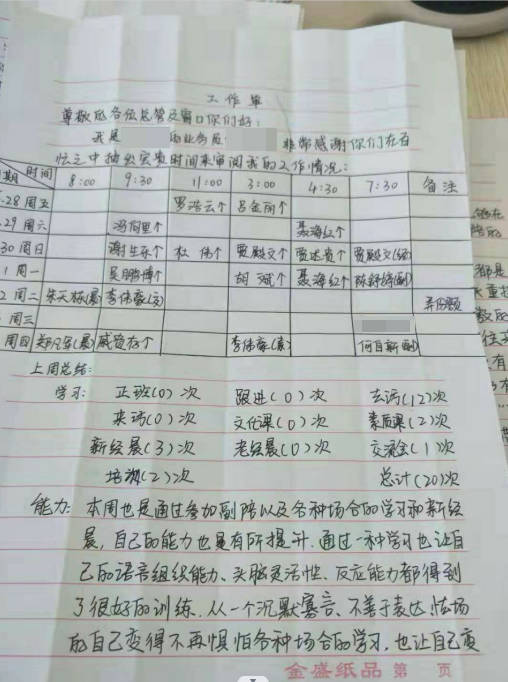 工作单
尊敬的各位总管及窗口你们好:
我是 的业务员 非常感谢你们在百
忙之中抽出宝贵时间来审阅我的工作情况:
时间 8:00 9:30 11:00 3:00 4:30 7:30 备注
期
.28 周五 罗浩云个 吕金丽个
.29 周六 冯何里个 聂海红个
30 周日 谢生东个 杜伟个 贾殿文个 贾达贵个 贾殿文(经)
1 周一 吴鹏博个 胡斌个 聂海红个 陈舒绮(副)
2 周二 朱天栋(晨) 李伟豪(交)
周三
周四 郑凡令(晨) 臧贺存个 李伟豪(素) 何自新(副)
上周总结:
学习: 正班(0)次 跟进(0)次 去访(12)次
来访(0)次 文化课(0)次 素质课(2)次
新经晨(3)次 老经晨(0)次 交流会(1)次
培训(2)次 总计(20)次
能力: 本周也是通过参加副陪以及各种场合的学习和新经
晨,自己的能力也是有所提升.通过一种学习也让自
己的语言组织能力、头脑灵活性、反应能力都得到
了很好的训练.从一个沉默寡言、不善于表达怯场
的自己变得不再惧怕各种场合的学习,也让自己变
金盛纸品 第 页